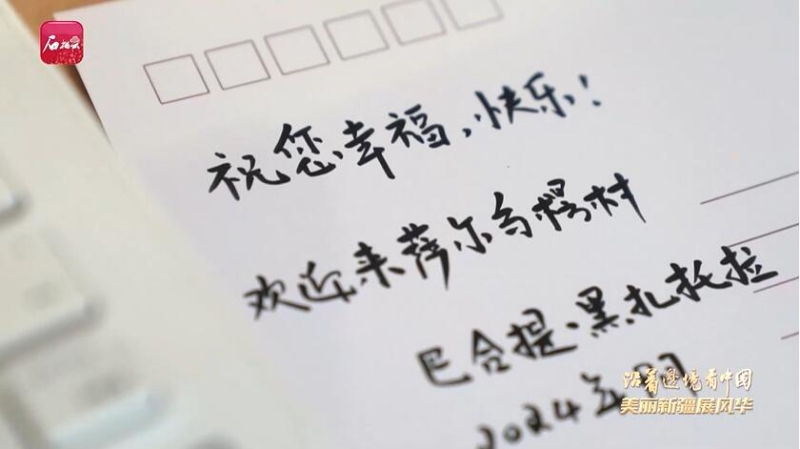 石榴云
祝您幸福、快乐!
欢迎来萨尔乌楞村
巴合提·黑扎托拉
2024年
沿着边境看中国
美丽新疆展风华